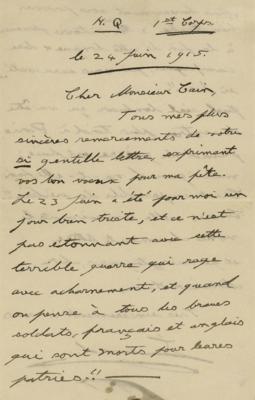 H. Q 1st Corps
le 24 juin 1915.
Cher Monsieur Cain,
Tous mes plus
sincères remerciements de votre
si gentille lettre, exprimant
vos bon voeux pour ma fête.
Le 23 juin a été pour moi un
jour bien triste, et ce n'est
pas étonnant avec cette
terrible guerre qui rage
avec acharnement, et quand
on pense à tous les braves
soldats, français et anglais
qui sont morts pour leurs
patries!! —